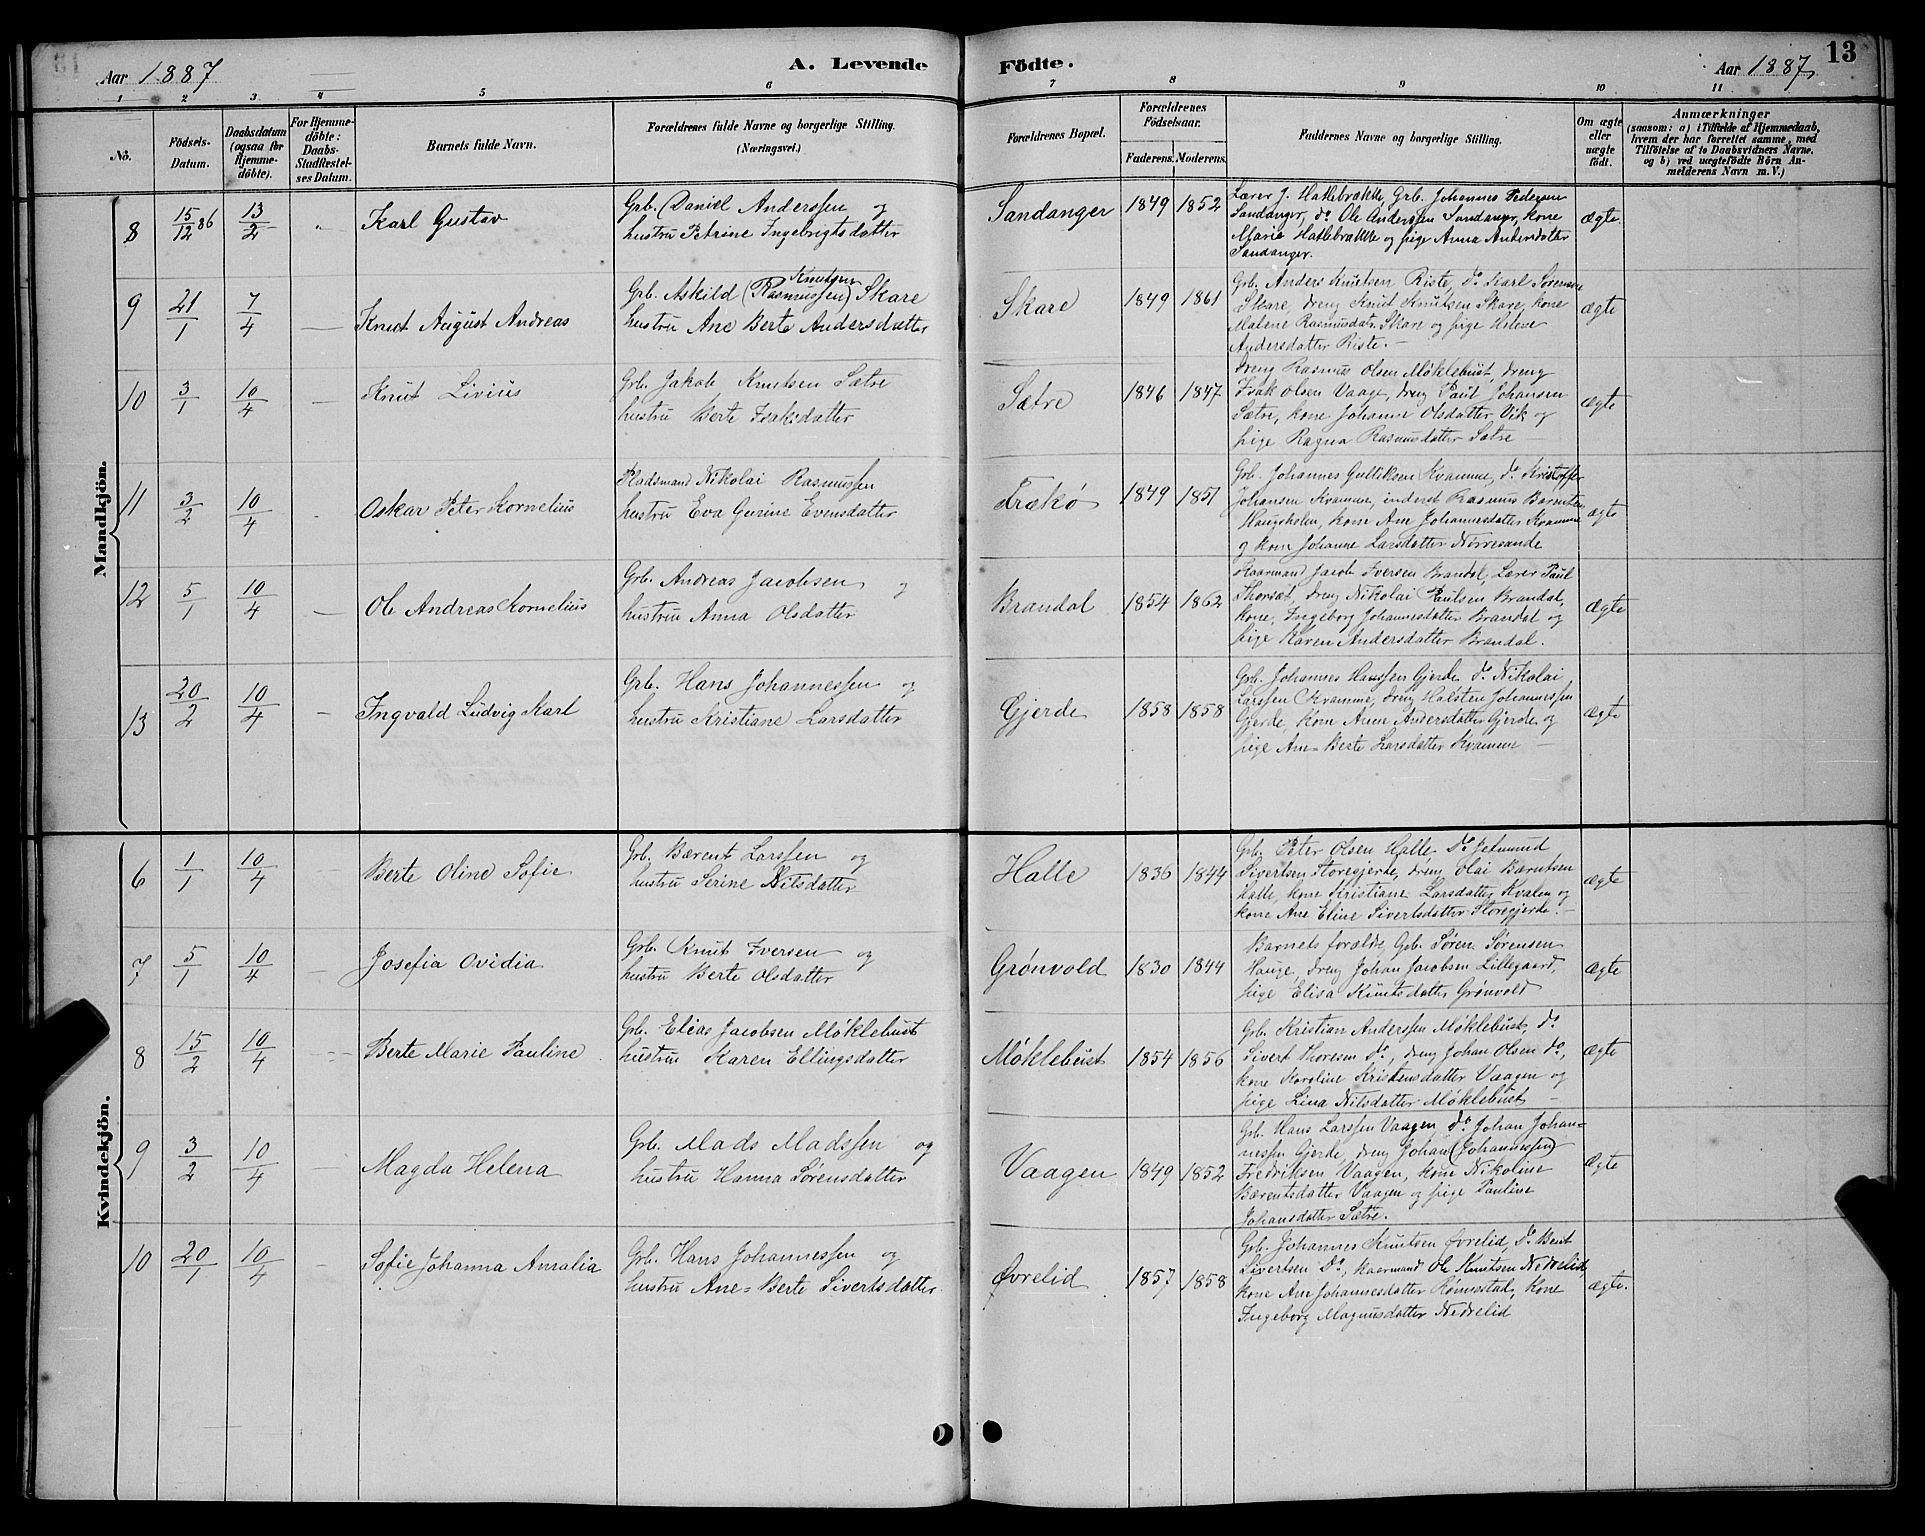 Aar 1887
A. Levende
Fødte.
Aar 1887
13
1 2 3 4 5 6 7 8 9 10 11
No.
Födsels-
Datum.
Daabsdatum
(ogsaa for
Hjemme-
döbte).
For Hjemme-
döbte:
Daabs-
Stadfæstel-
ses Datum.
Barnets fulde Navn.
Forældrenes fulde Navne og borgerlige Stilling.
(Næringsvei.)
Forældrenes Bopæl.
Forældrenes
Födselsaar.
Faderens. Moderens.
Faddernes Navne og borgerlige Stilling.
Om ægte
eller
uægte
födt.
Anmærkninger
(saasom: a) i Tilfælde af Hjemmedaab,
hvem der har forrettet samme, med
Tilföielse af to Daabsvidners Navne.
og b) ved uægtefödte Börn An-
melderens Navn m. V.)
Mandkjön.
8 15/12 86 13/2 Karl Gustav
Grb. (Daniel Anderssen og
hustru Petrine Ingebrigtsdatter
Sandanger 1849 1852
Lærer J. Hatlebrække, Grb. Johannes Pedersen
Sandanger, do Ole Anderssen Sandanger, kone
Marie Hatlebrække og pige Anna Andersdatter
Sandanger.
ægte
9 21/1 7/4 — Knut August Andreas
Knutsen
Grb. Askild (Rasmussen) Skare
hustru Ane Berte Andersdatter
Skare 1849 1861
Grb. Anders Knutsen Riste, do Karl Sørensen
Skare, dreng Knut Knutsen Skare, kone
Malene Rasmusdatr. Skare og pige Helene
Andersdatter Riste. —
ægte
10 3/1 10/4 — Knut Livius
Grb. Jakob Knutsen Sætre
hustru Berte Isaksdatter
Sætre 1846 1847
dreng Rasmus Olsen Møklebust, dreng
Isak Olsen Vaage, dreng Paul Johansen
Sætre, kone Johanne Olsdatter Vik og
pige Ragna Rasmusdatter Sætre —
ægte
11 3/2 10/4 Oskar Peter Kornelius
Pladsmand Nikolai Rasmussen
hustru Eva Gurine Evensdatter
Trækø 1849 1851
Grb. Johannes Gulliksen Kvamme, do Kristoffer
Johansen Kvamme, inderst Rasmus Barentsen
Haugsholen, kone Ane Johannesdatter Kvamme
og kone Johanne Larsdatter Nørresande
ægte
12 5/1 10/4 — Ole Andreas Kornelius
Grb. Andreas Jacobsen og
hustru Anna Olsdatter
Brandal 1854 1862
Kaarmand Jacob Iversen Brandal, Lærer Paul
Thorsæt, dreng Nikolai Paulsen Brandal,
kone, Ingeborg Johannesdatter Brandal og
pige Karen Andersdatter Brandal.
ægte
13 20/2 10/4 — Ingvald Ludvig Karl
Grb. Hans Johannessen og
hustru Kristiane Larsdatter
Gjerde 1858 1858
Grb. Johannes Hanssen Gjerde do Nikolai
Larssen Kvamme, dreng Halsten Johannessen
Gjerde, kone Anne Andersdatter Gjerde og
pige Ane-Berte Larsdatter Kvamme —
ægte
Kvindekjön.
6 1/1 10/4 Berte Oline Sofie
Grb. Bærent Larssen og
hustru Serine Nilsdatter
Halle 1836 1844
Grb. Peter Olsen Halle. do Jetmund
Sivertsen Storegjerde, dreng Olai Barentsen
Halle, kone Kristiane Larsdatter Kvalen og
kone Ane Eline Sivertsdatter Storegjerde. —
ægte
7 5/1 10/4 — Josefia Ovidia
Grb. Knut Iversen og
hustru Berte Olsdatter
Grønvold 1830 1844
Barnets forældre Grb. Søren Sørensen
Hauge, dreng Johan Jacobsen Lillegaard,
pige Elisa Knutsdatter Grønvold
ægte
8 15/2 10/4 Berte Marie Pauline
Grb. Elias Jacobsen Møklebust
hustru Karen Ellingsdatter
Møklebust 1854 1856
Grb. Kristian Anderssen Møklebust, do
Sivert Thoresen do, dreng Johan Olsen do,
kone Karoline Kristensdatter Vaagen og
pige Lina Nilsdatter Møklebust —
ægte
9 3/2 10/4 — Magda Helena
Grb. Mads Madssen og
hustru Hanna Sørensdatter
Vaagen 1849 1852
Grb. Hans Larssen Vaagen do Johan Johan-
nessen Gjerde, dreng Johan (Johannssen)
Fredriksen Vaagen, kone Nikoline
Bærentsdatter Vaagen og pige Pauline
Johansdatter Sætre.
ægte
10 20/1 10/4 — Sofie Johanna Amalia
Grb. Hans Johannessen og
hustru Ane-Berte Sivertsdatter
Øvrelid 1857 1858
Grb. Johannes Knutsen Øvrelid, do Bent
Sivertsen do, kaarmand Ole Knutsen Nedrelid,
kone Ane Johannesdatter Rømestad, kone
Ingeborg Magnusdatter Nedrelid
ægte.